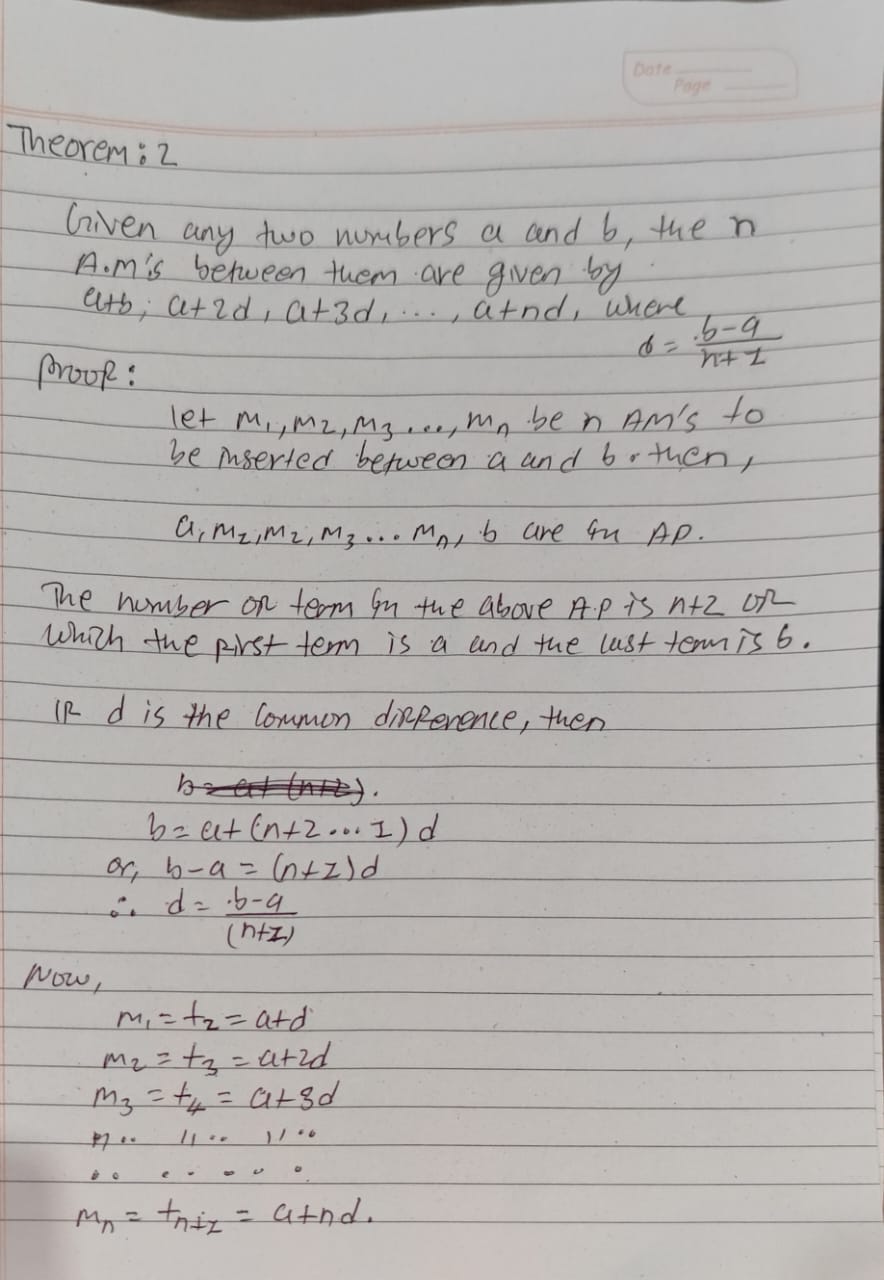 Date
Page
Theorem: 2
Given any two numbers a and b, the n
A.M's between them are given by
a+b, a+2d, a+3d, ..., a+nd, where
d = b-a / n+1
Proof:
let m₁, m₂, m₃ ..., mₙ be n AM's to
be inserted between a and b. then,
a, m₁, m₂, m₃ ... mₙ, b are in AP.
The number of term in the above A.P is n+2 of
which the first term is a and the last term is b.
If d is the common difference, then
b = a+(n+2 ... 1) d
or, b-a = (n+1)d
∴ d = b-a / (n+1)
Now,
m₁ = t₂ = a+d
m₂ = t₃ = a+2d
m₃ = t₄ = a+3d
mₙ = tₙ₊₁ = a+nd.